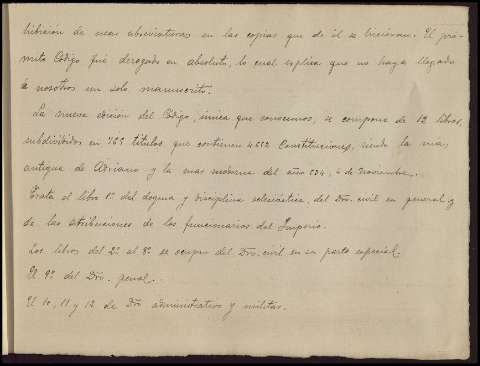 hibición de usar abreviaturas en las copias que de él se hicieran. El pri-
mitivo Código fué derogado en absoluto, lo cual esplica que no haya llegado
á nosotros un solo manuscrito.
La nueva edición del Código, única que conocemos, se compone de 12 libros,
subdivididos en 765 títulos que contienen 4652 Constituciones, siendo la mas
antigua de Adriano y la mas moderna del año 534, 4 de Noviembre.
Trata el libro 1º del dogma y disciplina eclesiástica, del Dro. civil en general y
de las atribuciones de los funcionarios del Imperio.
Los libros del 2º al 8º se ocupan del Dro. civil en su parte especial.
El 9º del Dro. penal.
El 10, 11 y 12 de Dro. administrativo y militar.